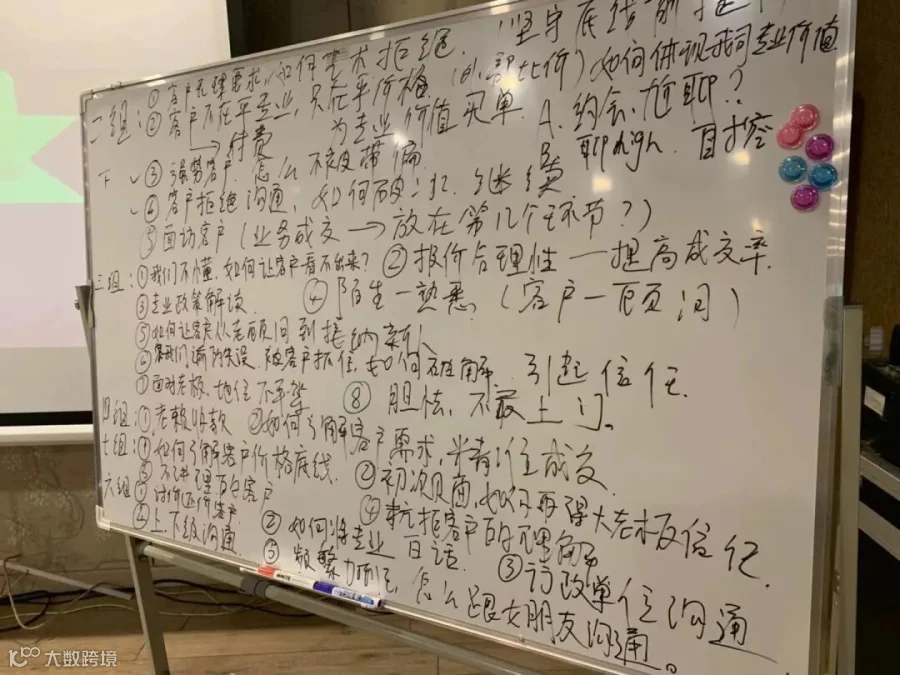 二组：① 客户无理要求，如何艺术拒绝。（坚守底线前提下）
② 客户不在乎专业，只在乎价格（同部比价）如何体现我司专业价值
→付费 为专业价值买单 A. 约会，尬聊？
下 ✓③ 强势客户，怎么不被带偏 B. 聊high，自控
✓④ 客户拒绝沟通，如何破冰、继续
⑤ 面访客户（业务成交→放在第几个环节？）
三组：① 我们不懂，如何让客户看不出来？ ② 报价合理性—提高成交率
③ 专业政策解读 ④ 陌生—熟悉（客户—顾问）
⑤ 如何让客户从老顾问到接纳新人
⑥ 我们前期失误，被客户抓住，如何化解，引起信任
⑦ 面对老板，地位不平等 ⑧ 胆怯，不敢上门。
四组：① 老赖收款 ② 如何了解客户需求，半者准成交
七组：① 如何了解客户价格底线 ② 初次见面，如何取得大老板信任
⑤ 不讲理的客户 ④ 抗拒客户的理解
六组 ① 讨价还价客户 ② 如何将专业白话 ③ 行政单位沟通
④ 上、下级沟通 ⑤ 频繁 怎么跟女朋友沟通。
大数跨境